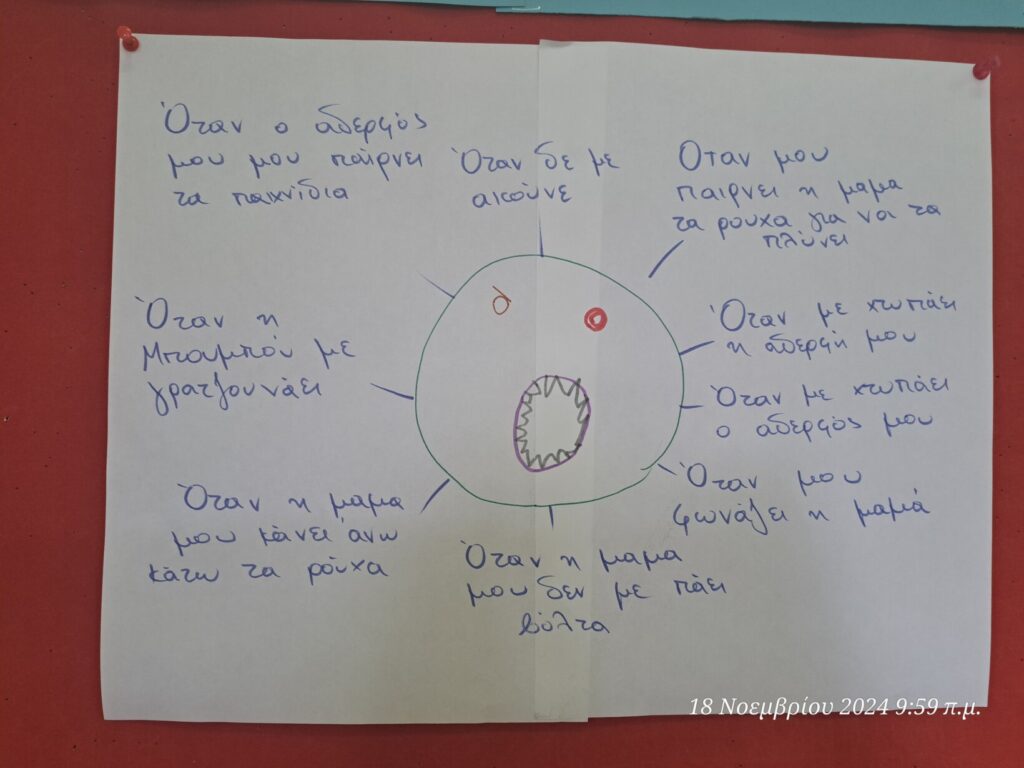 Όταν ο αδερφός
μου μου παίρνει
τα παιχνίδια
Όταν δε με
ακούνε
Όταν μου
παιρνει η μαμα
τα ρουχα για να τα
πλύνει
Όταν με χτυπάει
η αδερφή μου
Όταν με χτυπάει
ο αδερφός μου
Όταν μου
φωνάζει η μαμά
Όταν η μαμα
μου δεν με πάει
βόλτα
Όταν η μαμα
μου κάνει άνω
κάτω τα ρούχα
Όταν η
Μπαμπού με
γρατζουνάει
18 Νοεμβρίου 2024 9:59 π.μ.